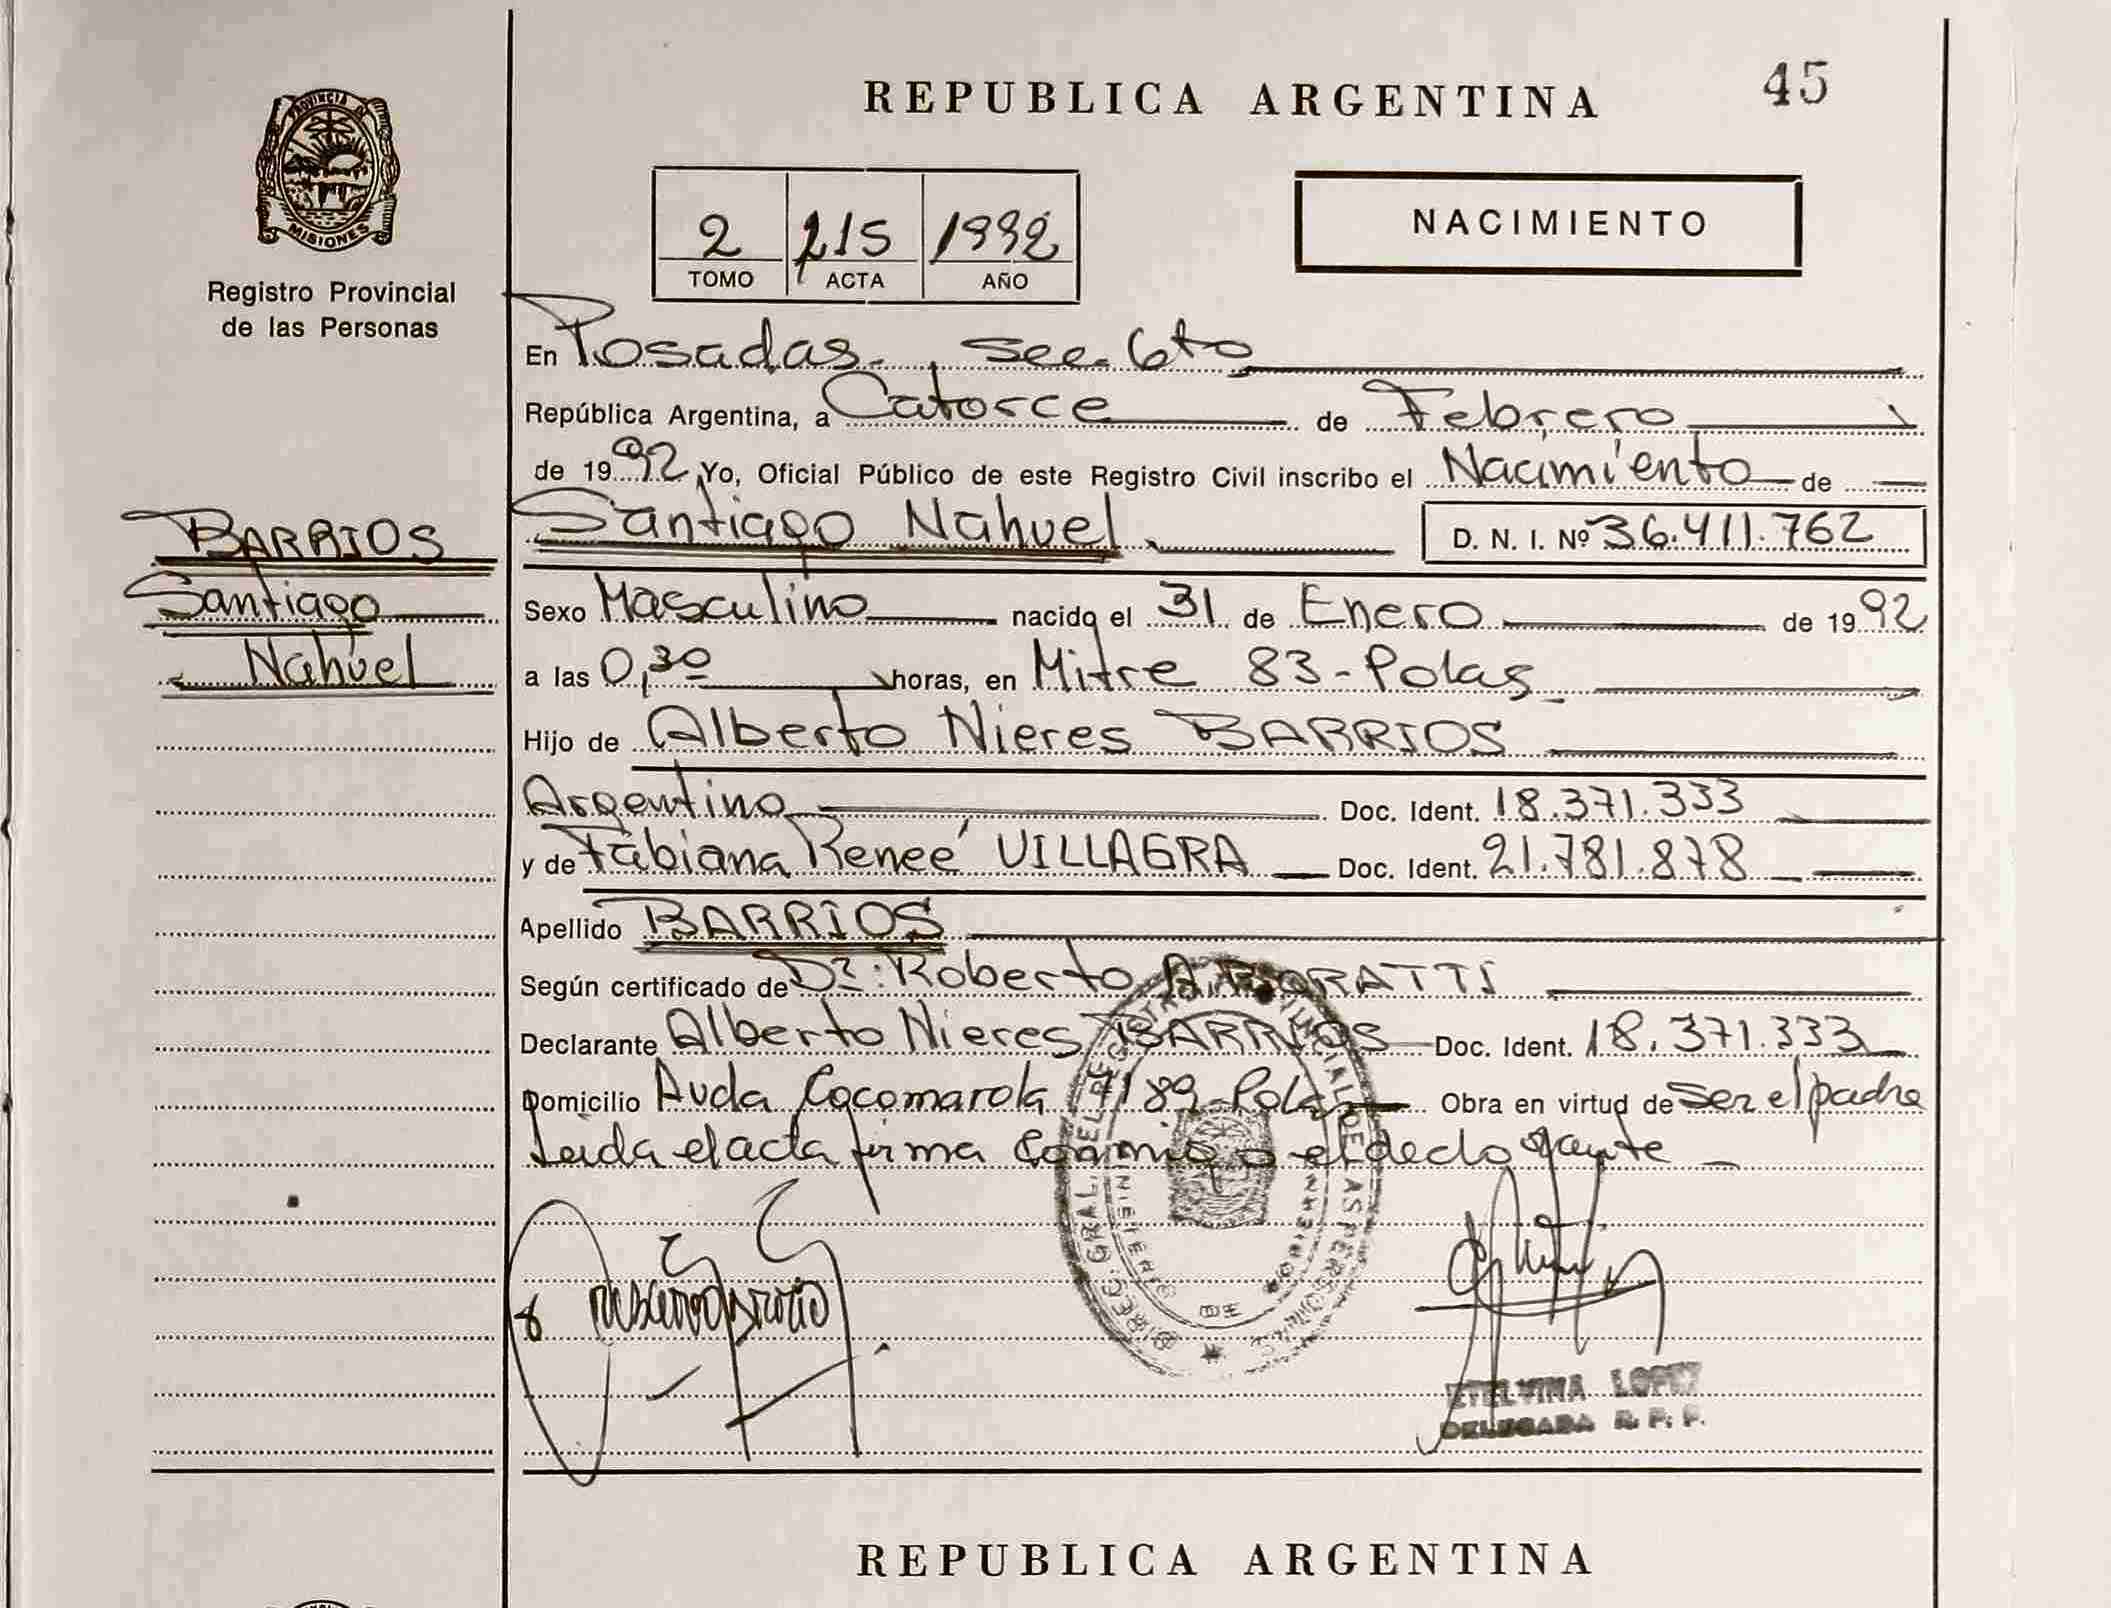 45
REPUBLICA ARGENTINA
PROVINCIA DE
MISIONES
Registro Provincial
de las Personas
2 215 1992
TOMO ACTA AÑO
NACIMIENTO
En Posadas, sec. 6to
República Argentina, a Catorce de Febrero
de 1992 Yo, Oficial Público de este Registro Civil inscribo el Nacimiento de
BARRIOS
Santiago
Nahuel
Santiago Nahuel D. N. I. Nº 36.411.762
Sexo Masculino nacido el 31 de Enero de 1992
a las 0,30 horas, en Mitre 83-Pdas
Hijo de Alberto Nieres BARRIOS
Argentino Doc. Ident. 18.371.333
y de Fabiana Reneé VILLAGRA Doc. Ident. 21.781.878
Apellido BARRIOS
Según certificado de Dr: Roberto A. BORATTI
Declarante Alberto Nieres BARRIOS Doc. Ident. 18.371.333
Domicilio Avda Cocomarola 7189-Pdas Obra en virtud de ser el padre
Leida el acta firma conmigo el declarante
ETELVINA LOPEZ
DELEGADA R. P. P.
REPUBLICA ARGENTINA